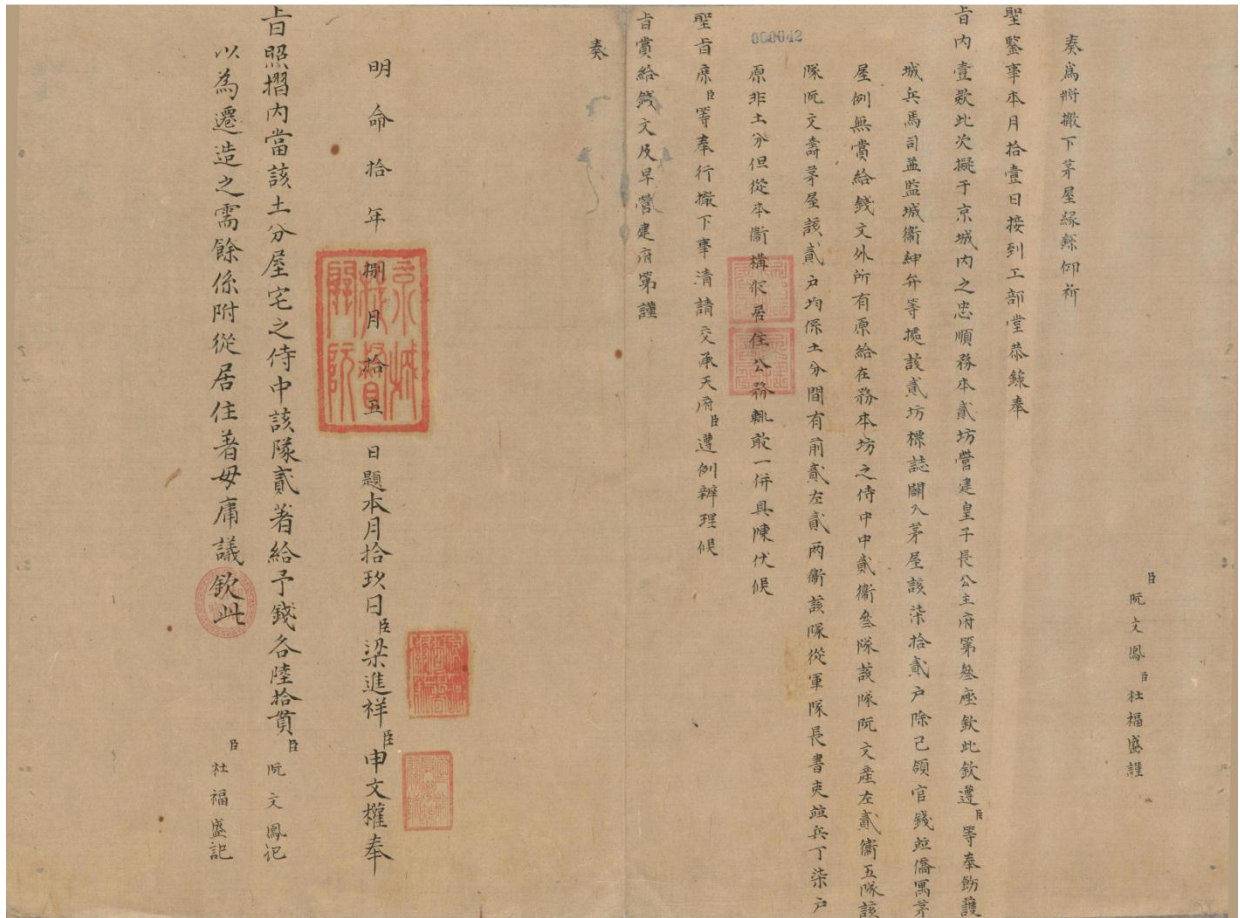 臣阮文鳳臣杜福盛謹
奏爲將撤下茅屋緣繇仰祈
聖鑒事本月拾壹日接到工部堂恭錄奉
旨內壹款此次擬于京城內之忠順務本貳坊營建皇子長公主府第叄座欽此欽遵臣等奉飭護
城兵馬司並監城衛紳弁等據該貳坊標誌關入茅屋該柒拾貳戶除已領官錢並僑寓茅
屋例無賞給錢文外所有原給在務本坊之侍中中貳衛叄隊該隊阮文產左貳衛五隊該
隊阮文壽茅屋該貳戶均係土分間有前貳左貳兩衛該隊從軍隊長書吏並兵丁柒戶
原非土分但從本衛構作居住公務執敢一併具陳伏候
聖旨庶臣等奉行撤下事清請交承天府臣遵例辦理候
旨賞給錢文及早營建府第謹
奏
000042
明命拾年捌月拾五日題本月拾玖日臣梁進祥臣申文權奉
旨照摺內當該土分屋宅之侍中該隊貳著給予錢各陸拾貫
以為遷造之需餘係附從居住著毋庸議欽此
臣阮文鳳記
臣杜福盛記